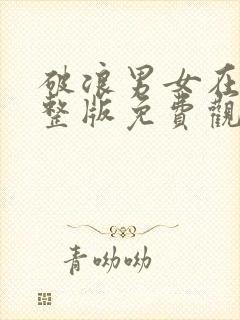 破浪男女在
整版免費觀
青呦呦